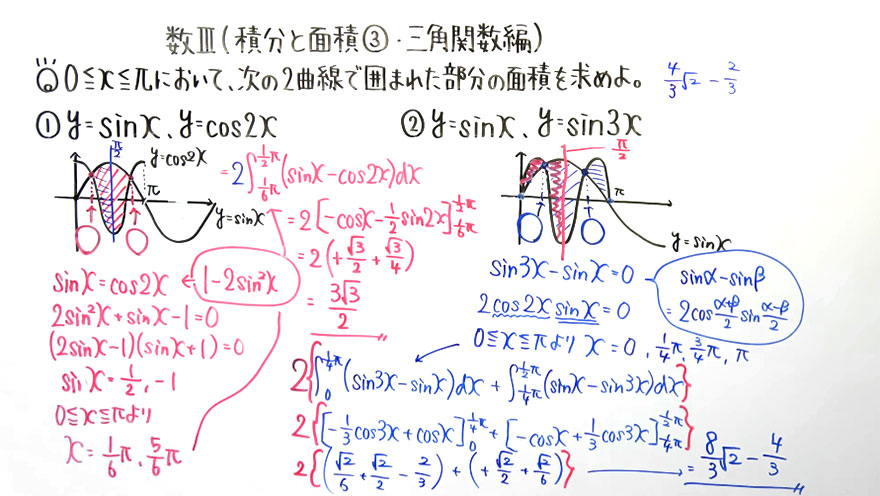 数Ⅲ(積分と面積③・三角関数編)
◎ 0≦x≦πにおいて、次の2曲線で囲まれた部分の面積を求めよ。 4/3√2 - 2/3
① y=sinx、y=cos2x
π/2
y=cos2x
π
y=sinx
= 2∫_{1/6π}^{1/2π}(sinx-cos2x)dx
= 2[-cosx-1/2sin2x]_{1/6π}^{1/2π}
= 2(+√3/2+√3/4)
= 3√3/2
sinx=cos2x ← 1-2sin²x
2sin²x+sinx-1=0
(2sinx-1)(sinx+1)=0
sinx=1/2,-1
0≦x≦πより
x=1/6π,5/6π
② y=sinx、y=sin3x
π/2
π
y=sinx
sin3x-sinx=0
sinα-sinβ
=2cos (α+β)/2 sin (α-β)/2
2cos2x sinx=0
0≦x≦πより x=0,1/4π,3/4π,π
2{∫_{0}^{1/4π}(sin3x-sinx)dx+∫_{1/4π}^{1/2π}(sinx-sin3x)dx}
2{[-1/3cos3x+cosx]_{0}^{1/4π}+[-cosx+1/3cos3x]_{1/4π}^{1/2π}}
2{(√2/6+√2/2-2/3)+(+√2/2+√2/6)} → = 8/3√2-4/3